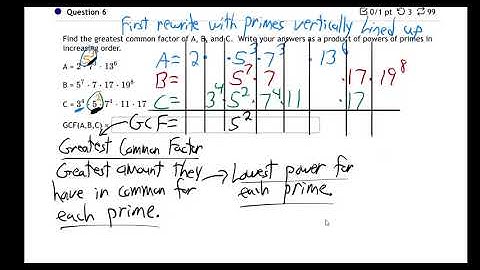 Question 6
0/1 pt 3 99
First rewrite with primes vertically lined up
Find the greatest common factor of A, B, and C. Write your answers as a product of powers of primes in
increasing order.
A= 2 · 5³ · 7³ · 13⁶
B= 5⁷ · 7 · 17 · 19⁸
C= 3⁴ · 5² · 7⁴ · 11 · 17
B = 5⁷ · 7 · 17 · 19⁸
· 11 · 17
GCF(A,B,C) =
GCF= 5²
Greatest Common Factor
Greatest amount they
have in common for
each prime.
→ Lowest power for
each prime.